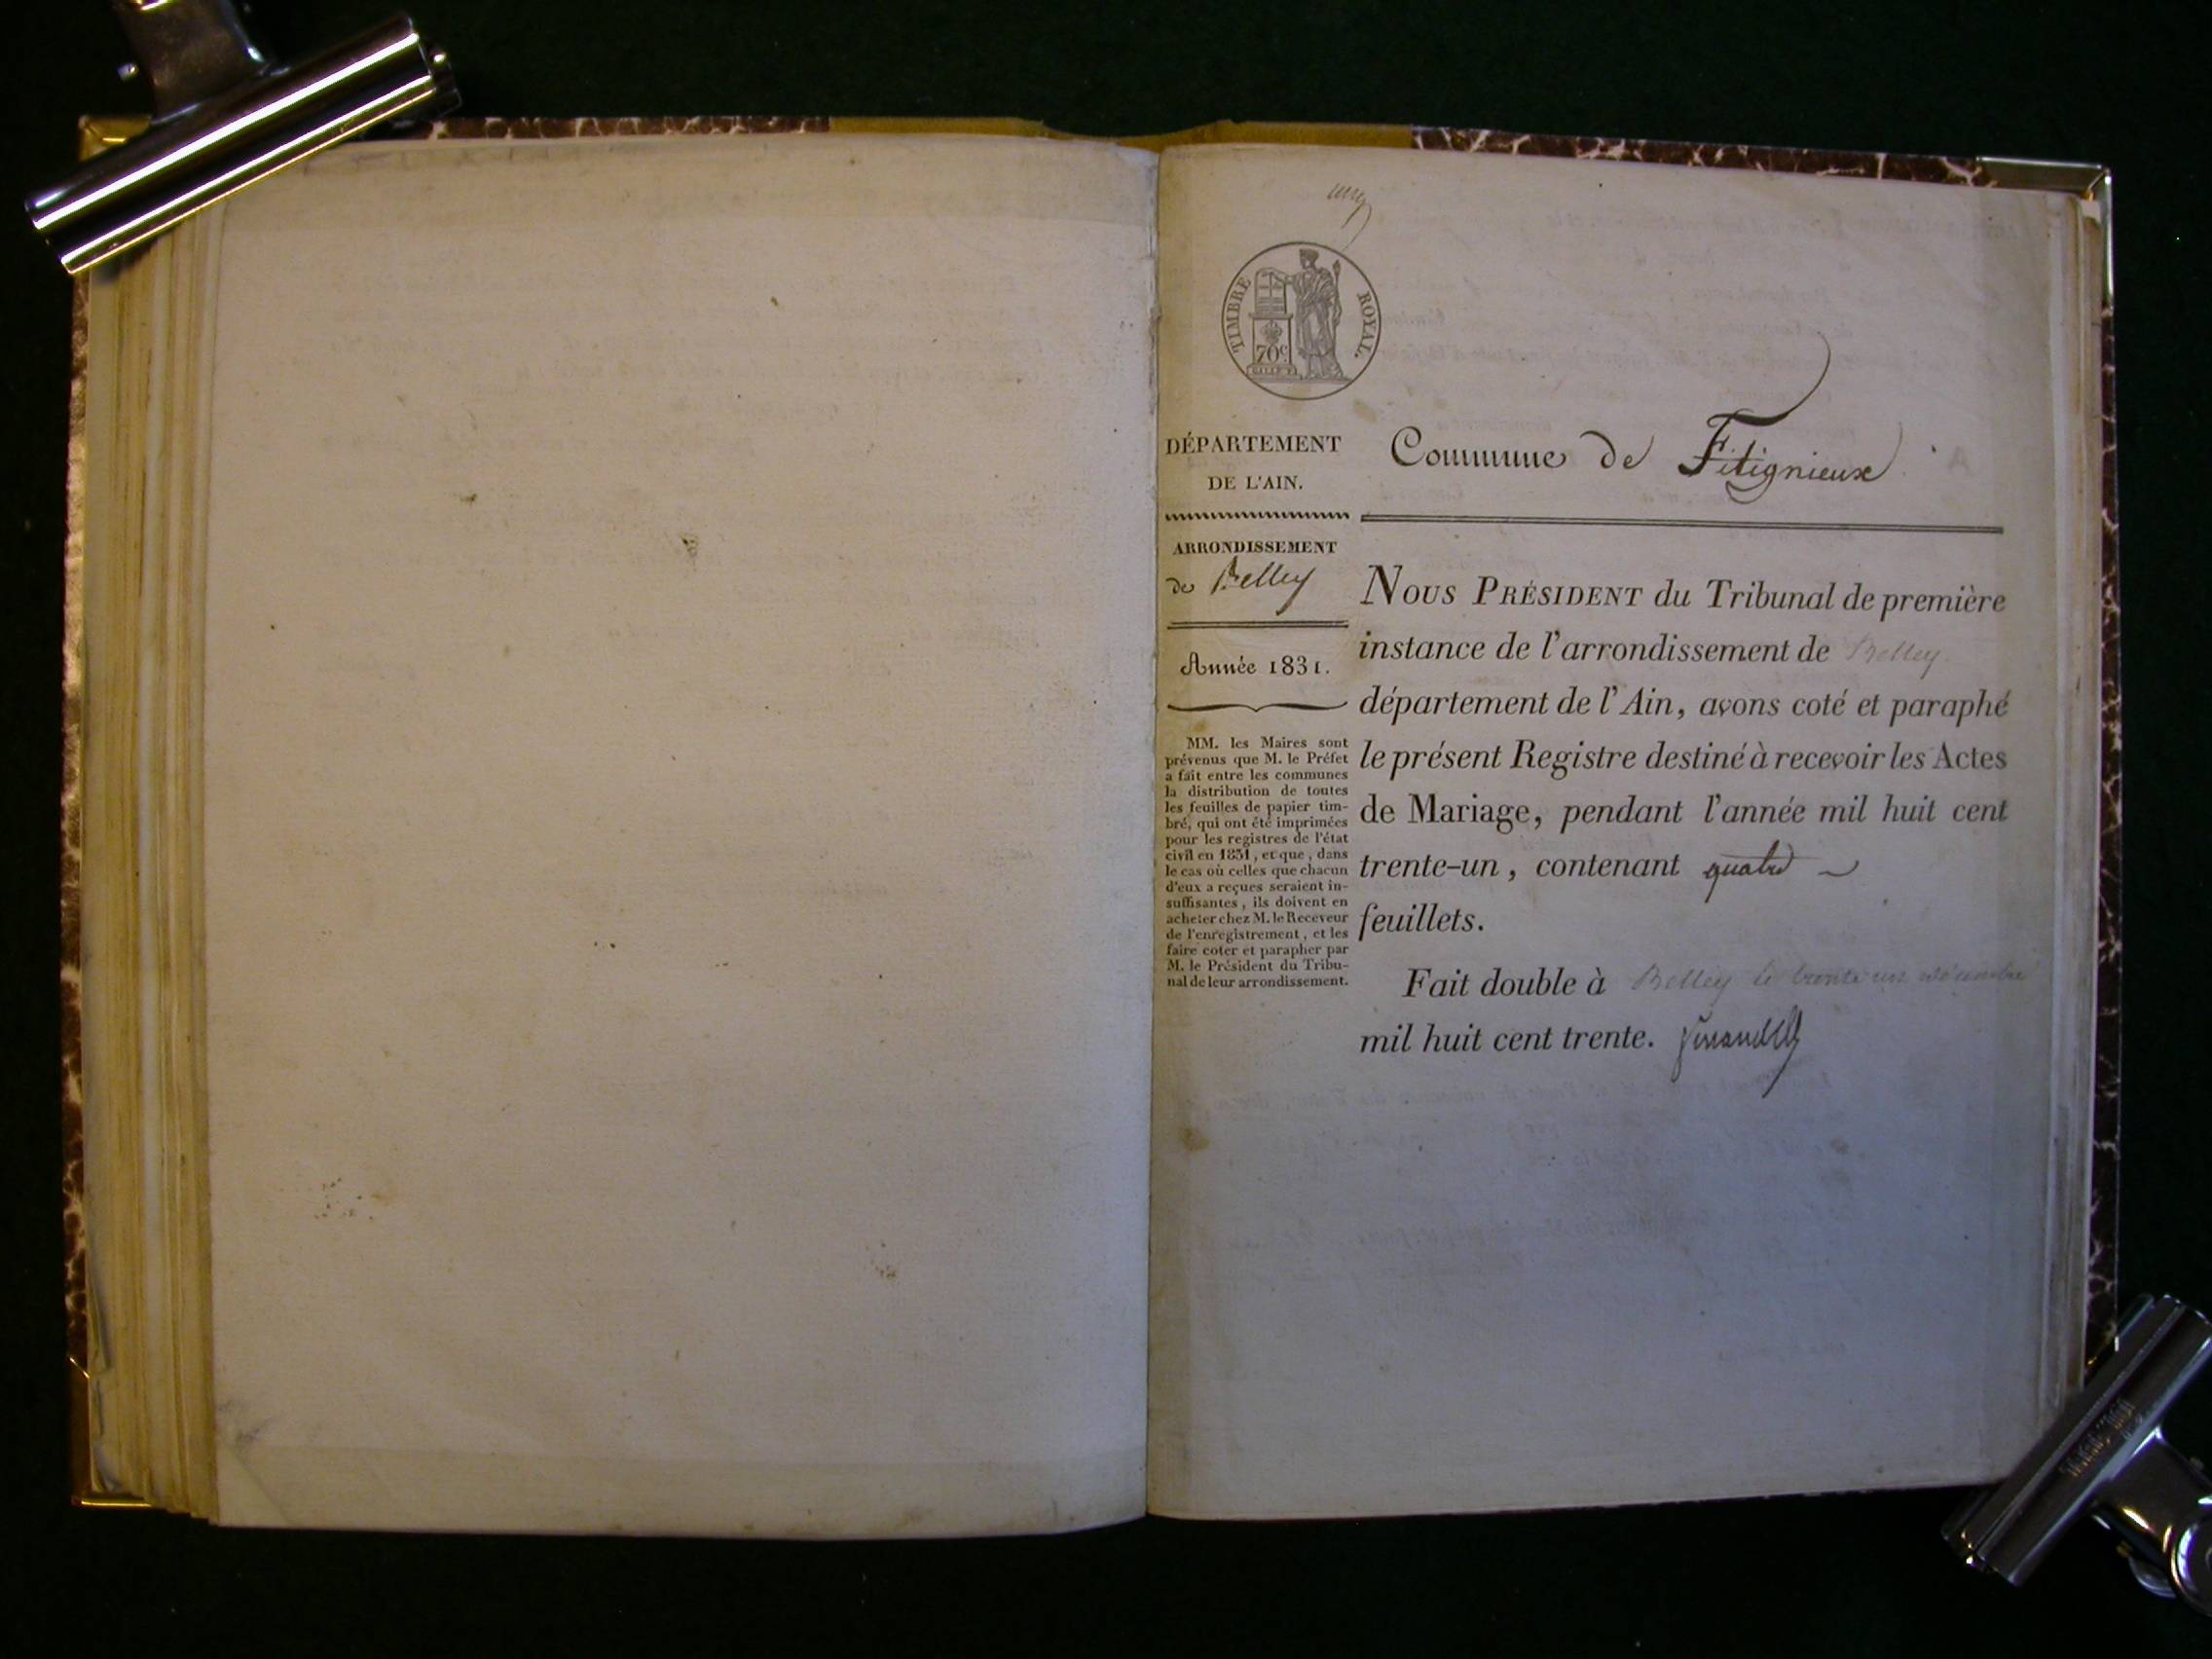 TIMBRE ROYAL.
70c
DÉPARTEMENT
DE L'AIN.
ARRONDISSEMENT
de Belley
Année 1831.
MM. les Maires sont
prévenus que M. le Préfet
a fait entre les communes
la distribution de toutes
les feuilles de papier tim-
bré, qui ont été imprimées
pour les registres de l'état
civil en 1831, et que, dans
le cas où celles que chacun
d'eux a reçues seraient in-
suffisantes, ils doivent en
acheter chez M. le Receveur
de l'enregistrement, et les
faire coter et parapher par
M. le Président du Tribu-
nal de leur arrondissement.
Commune de Fitignieux
NOUS PRÉSIDENT du Tribunal de première
instance de l'arrondissement de Belley
département de l'Ain, avons coté et paraphé
le présent Registre destiné à recevoir les Actes
de Mariage, pendant l'année mil huit cent
trente-un, contenant quatre
feuillets.
Fait double à Belley le trente un décembre
mil huit cent trente.